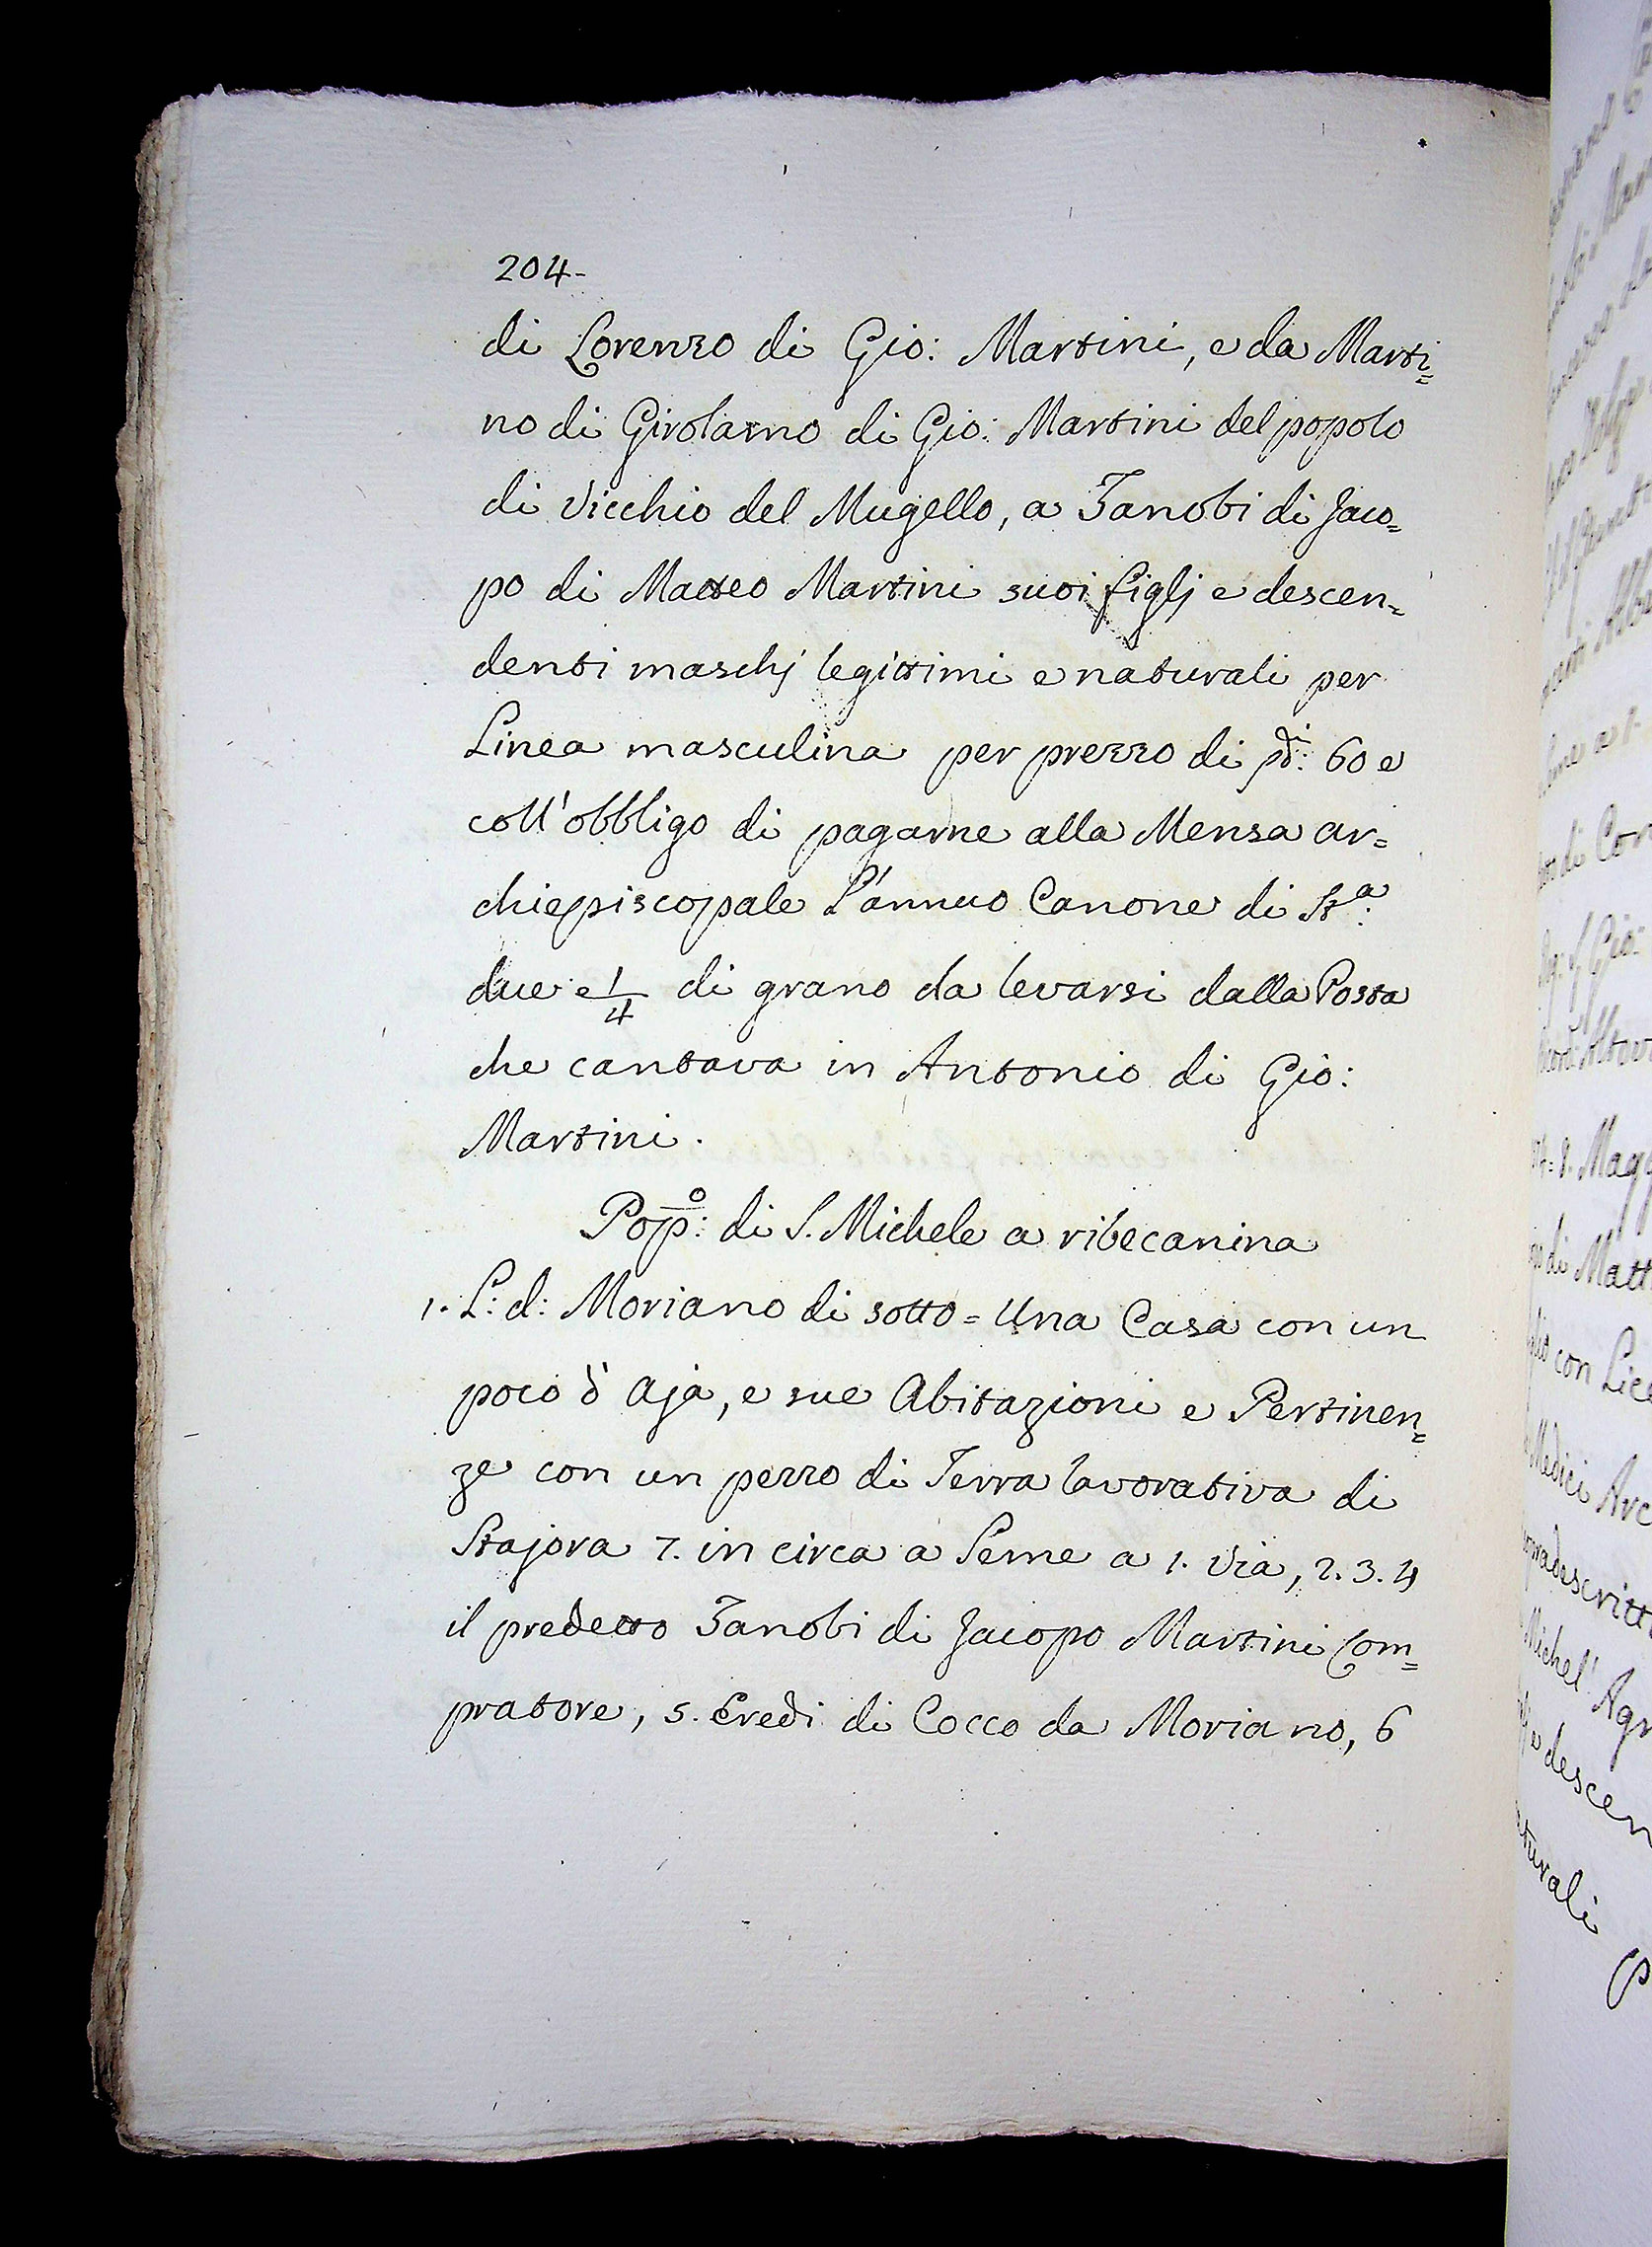 204-
di Lorenzo di Gio: Martini, e da Marti=
no di Girolamo di Gio: Martini del popolo
di Vicchio del Mugello, a Zanobi di Jaco=
po di Matteo Martini suoi figlj e descen=
denti maschj legittimi e naturali per
Linea masculina per prezzo di 60 e
coll'obbligo di pagarne alla Mensa ar=
chiepiscopale L'annuo Canone di Sta:
due e 1/4 di grano da levarsi dalla Posta
che cantava in Antonio di Gio:
Martini.
Popo: di S. Michele a ribecanina
1. L: d: Moriano di sotto = Una Casa con un
poco d'Aja, e sue Abitazioni e Pertinen=
ze con un pezzo di Terra lavorativa di
Stajora 7. in circa a Seme a 1. Via, 2. 3. 4
il predetto Zanobi di Jacopo Martini Com=
pratore, 5. Eredi di Cocco da Moriano, 6